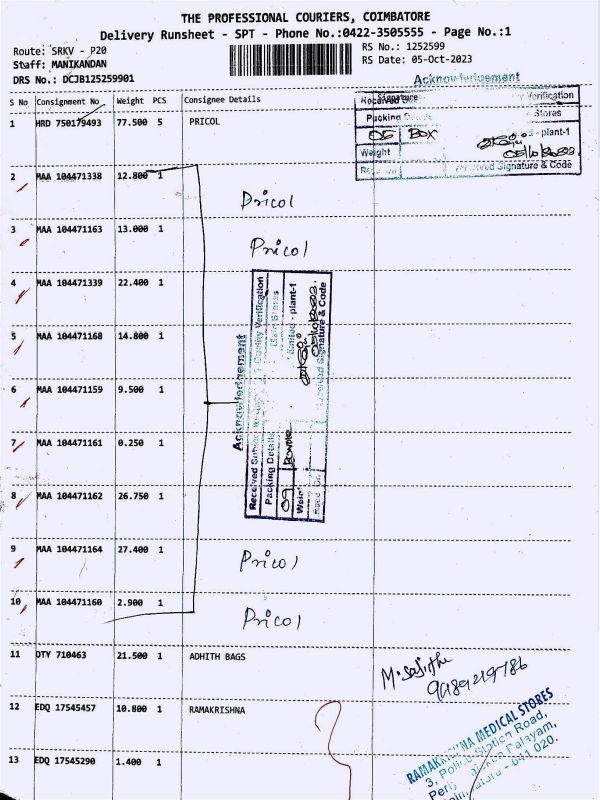 THE PROFESSIONAL COURIERS, COIMBATORE
Delivery Runsheet - SPT - Phone No.:0422-3505555 - Page No.:1
Route: SRKV - P20
RS No.: 1252599
Staff: MANIKANDAN
RS Date: 05-Oct-2023
DRS No.: DCJB125259901
Acknowledgement
S No Consignment No Weight PCS Consignee Details
Received
Signature
Verification
Packing
Stores
1 HRD 750179493 77.500 5 PRICOL
05 BOX
- plant-1
Weight
05/10/2023
Signature & Code
2 MAA 104471338 12.800 1
Pricol
3 MAA 104471163 13.000 1
Pricol
4 MAA 104471339 22.400 1
5 MAA 104471168 14.800 1
6 MAA 104471159 9.500 1
7 MAA 104471161 0.250 1
8 MAA 104471162 26.750 1
Acknowledgement
Received Quality Verification
Packing Details Stores
09 Bundle - plant-1
05/10/2023
Signature & Code
9 MAA 104471164 27.400 1
Pricol
10 MAA 104471160 2.900 1
Pricol
11 DTY 710463 21.500 1 ADHITH BAGS
12 EDQ 17545457 10.800 1 RAMAKRISHNA
RAMAKRISHNA MEDICAL STORES
3, Police Station Road,
Palayam,
641 020.
13 EDQ 17545290 1.400 1